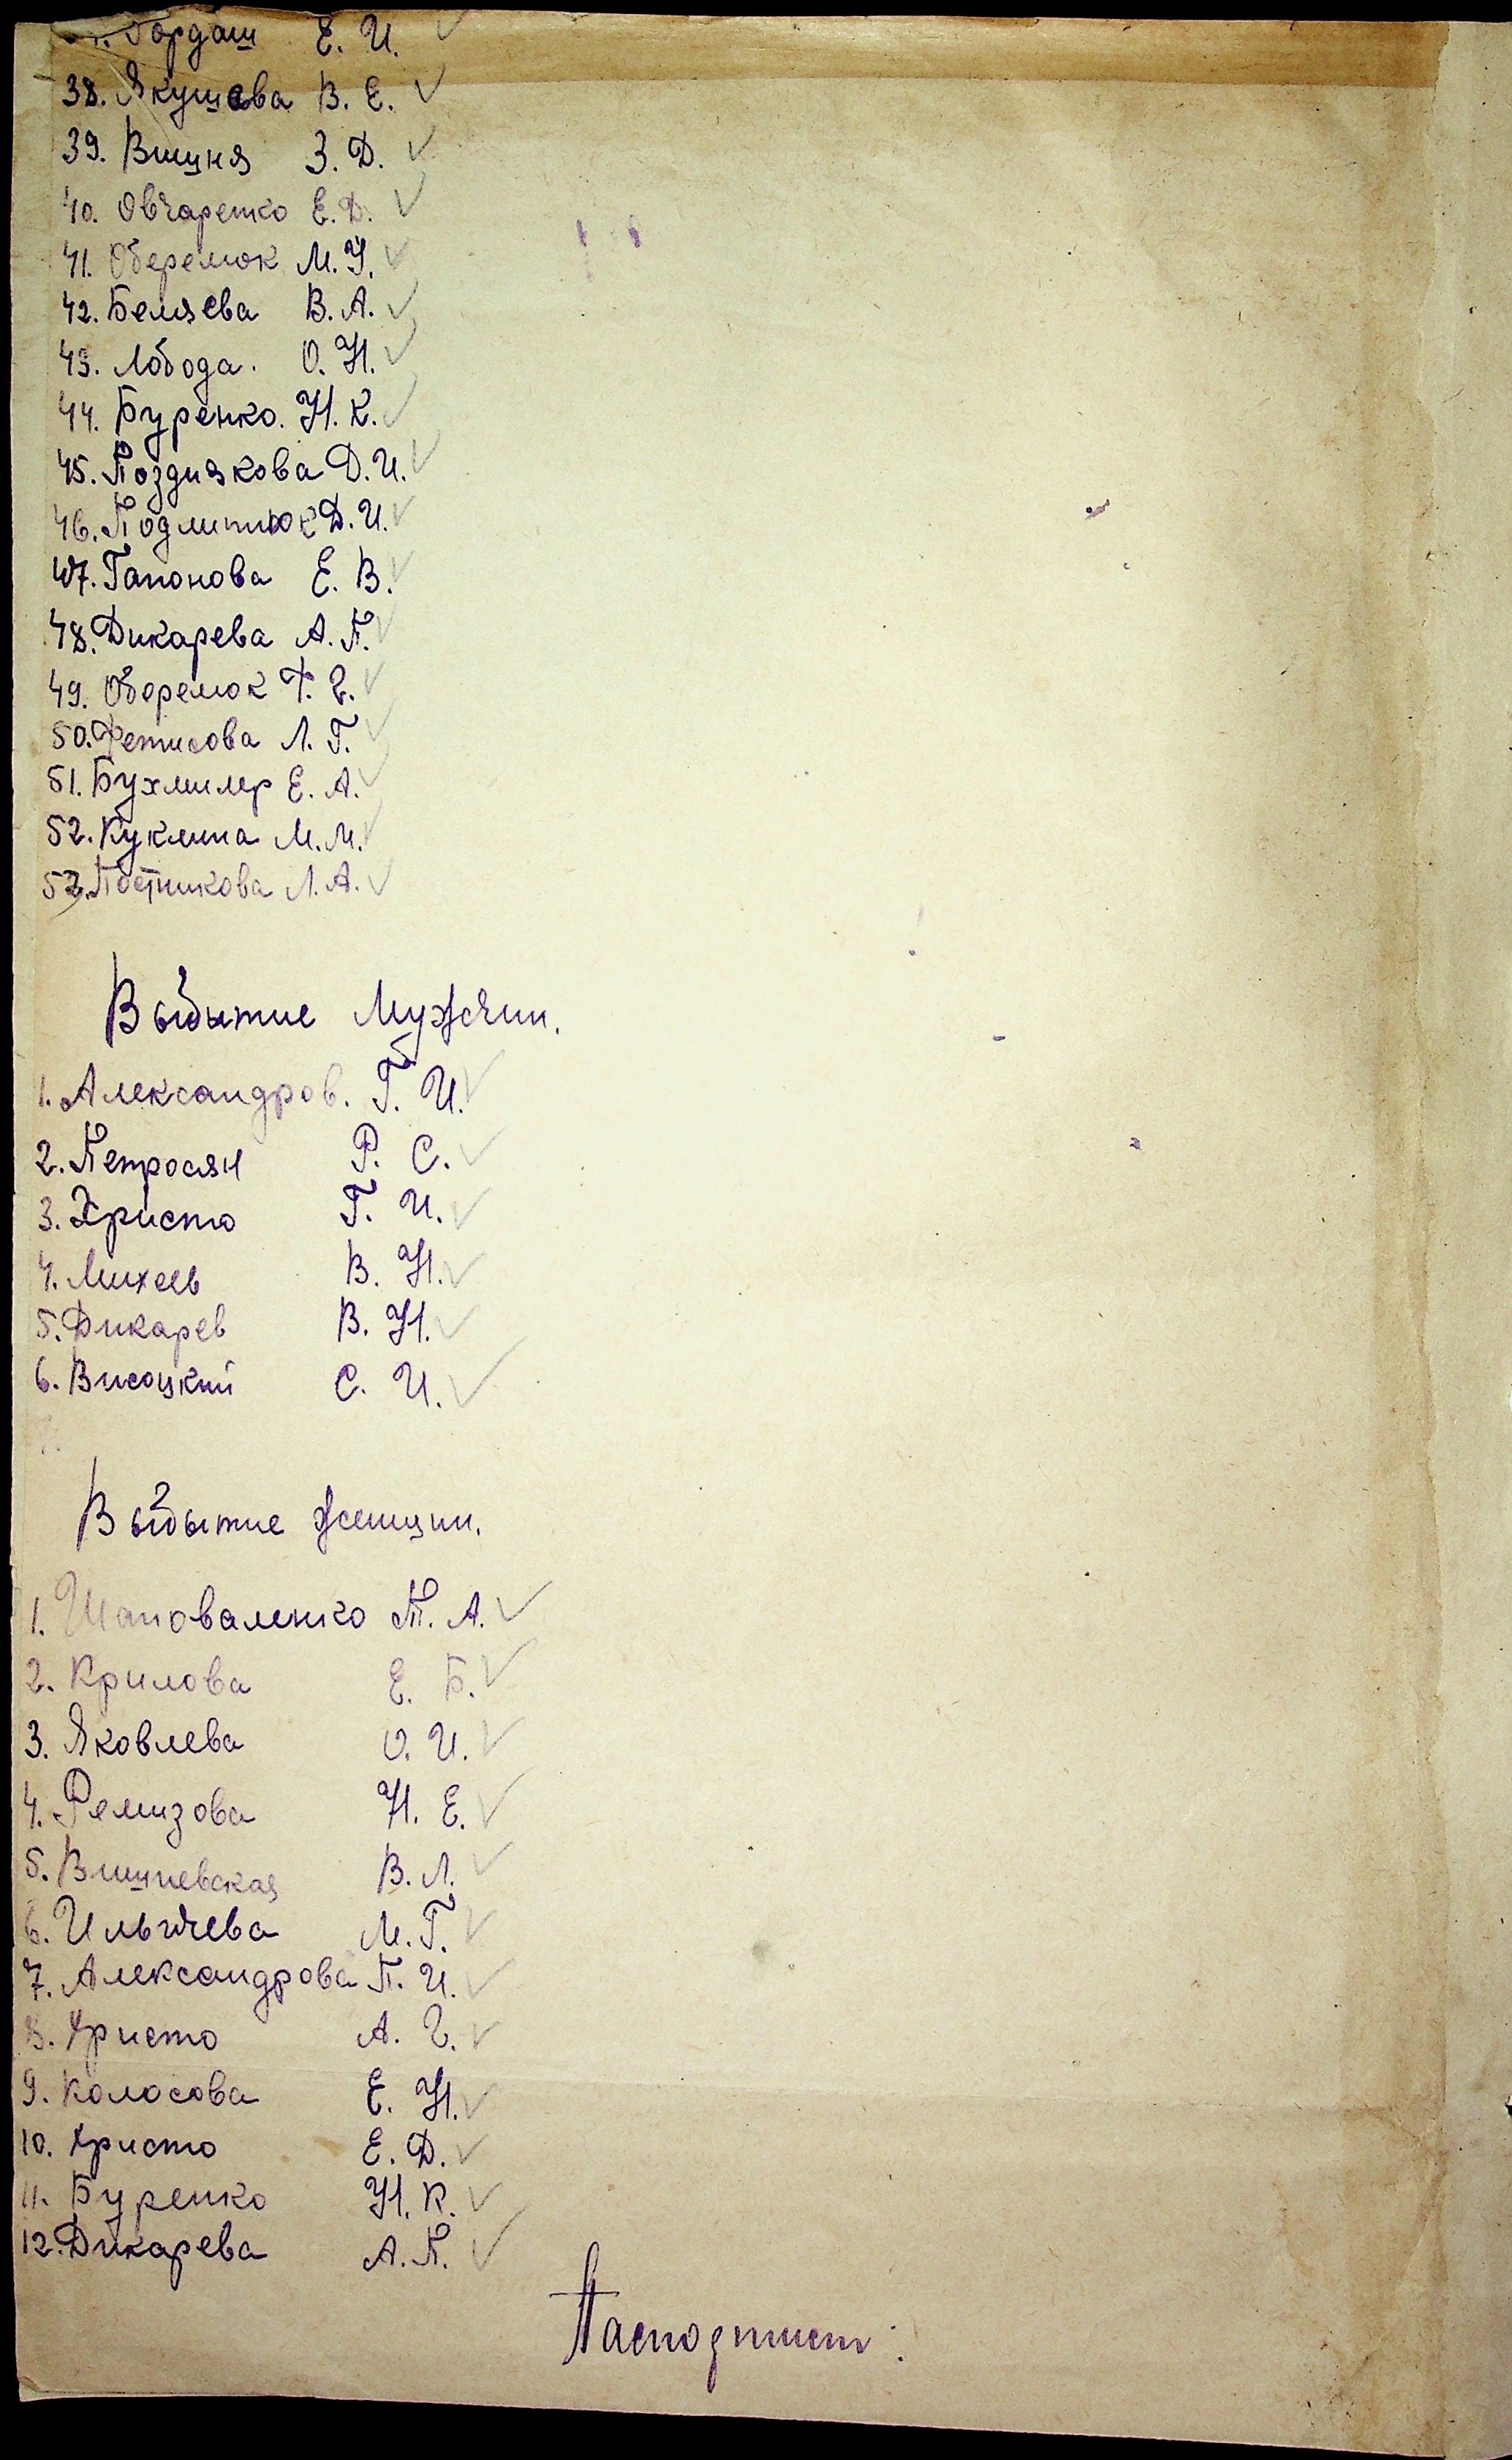 Бордаш Е. И.
38. Якушева В. Е.
39. Вишня З. Д.
40. Овчаренко Е. Д.
41. Оберемок М. У.
42. Беляева В. А.
43. Лобода. О. Н.
44. Буренко. Н. К.
45. Позднякова Д. И.
46. Подлипнюк Д. И.
47. Гапонова Е. В.
48. Дикарева А. П.
49. Оберемок Т. Г.
50. Фетисова Л. Г.
51. Бухмилер Е. А.
52. Куклина М. М.
53. Постникова Л. А.
Выбытие Мужчин.
1. Александров. Г. И.
2. Петросян Р. С.
3. Христо Г. И.
4. Михеев В. Н.
5. Дикарев В. Н.
6. Висоцкий С. И.
Выбытие женщин.
1. Шаповаленко Т. А.
2. Крилова Е. Б.
3. Яковлева О. И.
4. Ремизова Н. Е.
5. Вишневская В. Л.
6. Ильичева М. Г.
7. Александрова П. И.
8. Христо А. Г.
9. Колосова Е. Н.
10. Христо Е. Д.
11. Буренко Н. К.
12. Дикарева А. П.
Паспортист: